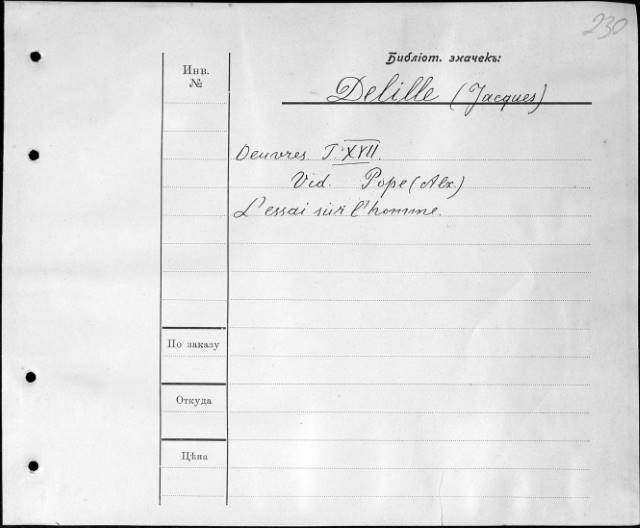 230
Библіот. значекъ:
Инв.
№
Delille (Jacques)
Oeuvres T. XVII.
Vid. Pope (Alx.)
L'essai sur l'homme.
По заказу
Откуда
Цѣна